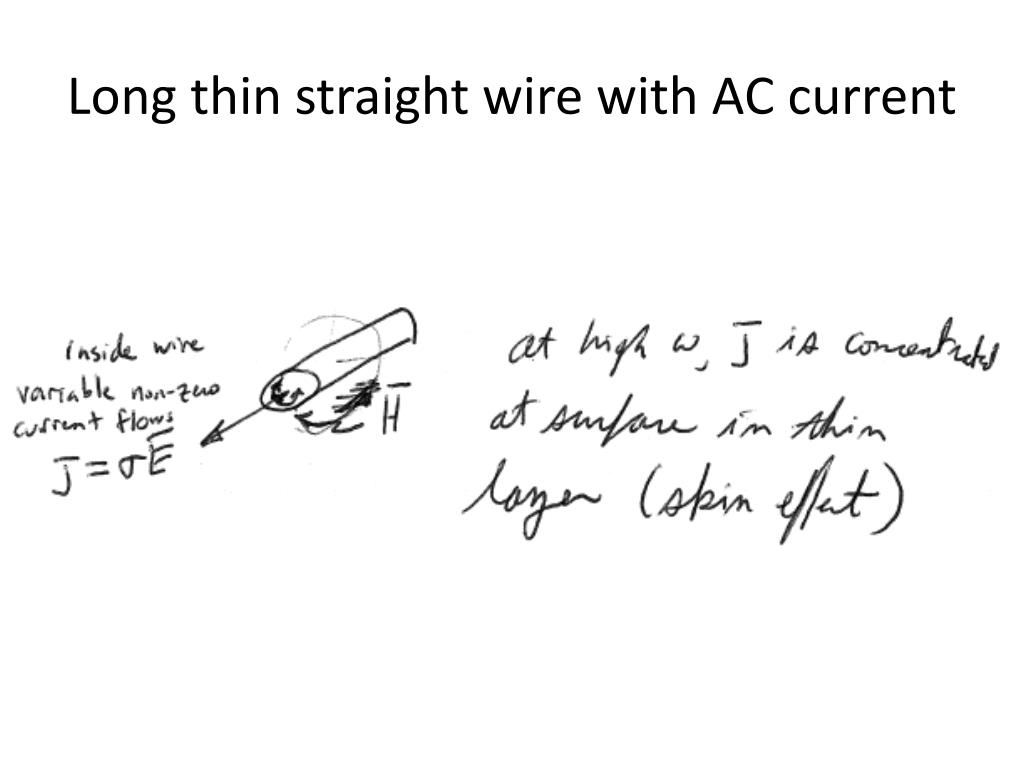 Long thin straight wire with AC current
inside wire
variable non-zero
current flows
J̅ = σE̅
H̅
at high ω, J̅ is concentrated
at surface in thin
layer (skin effect)